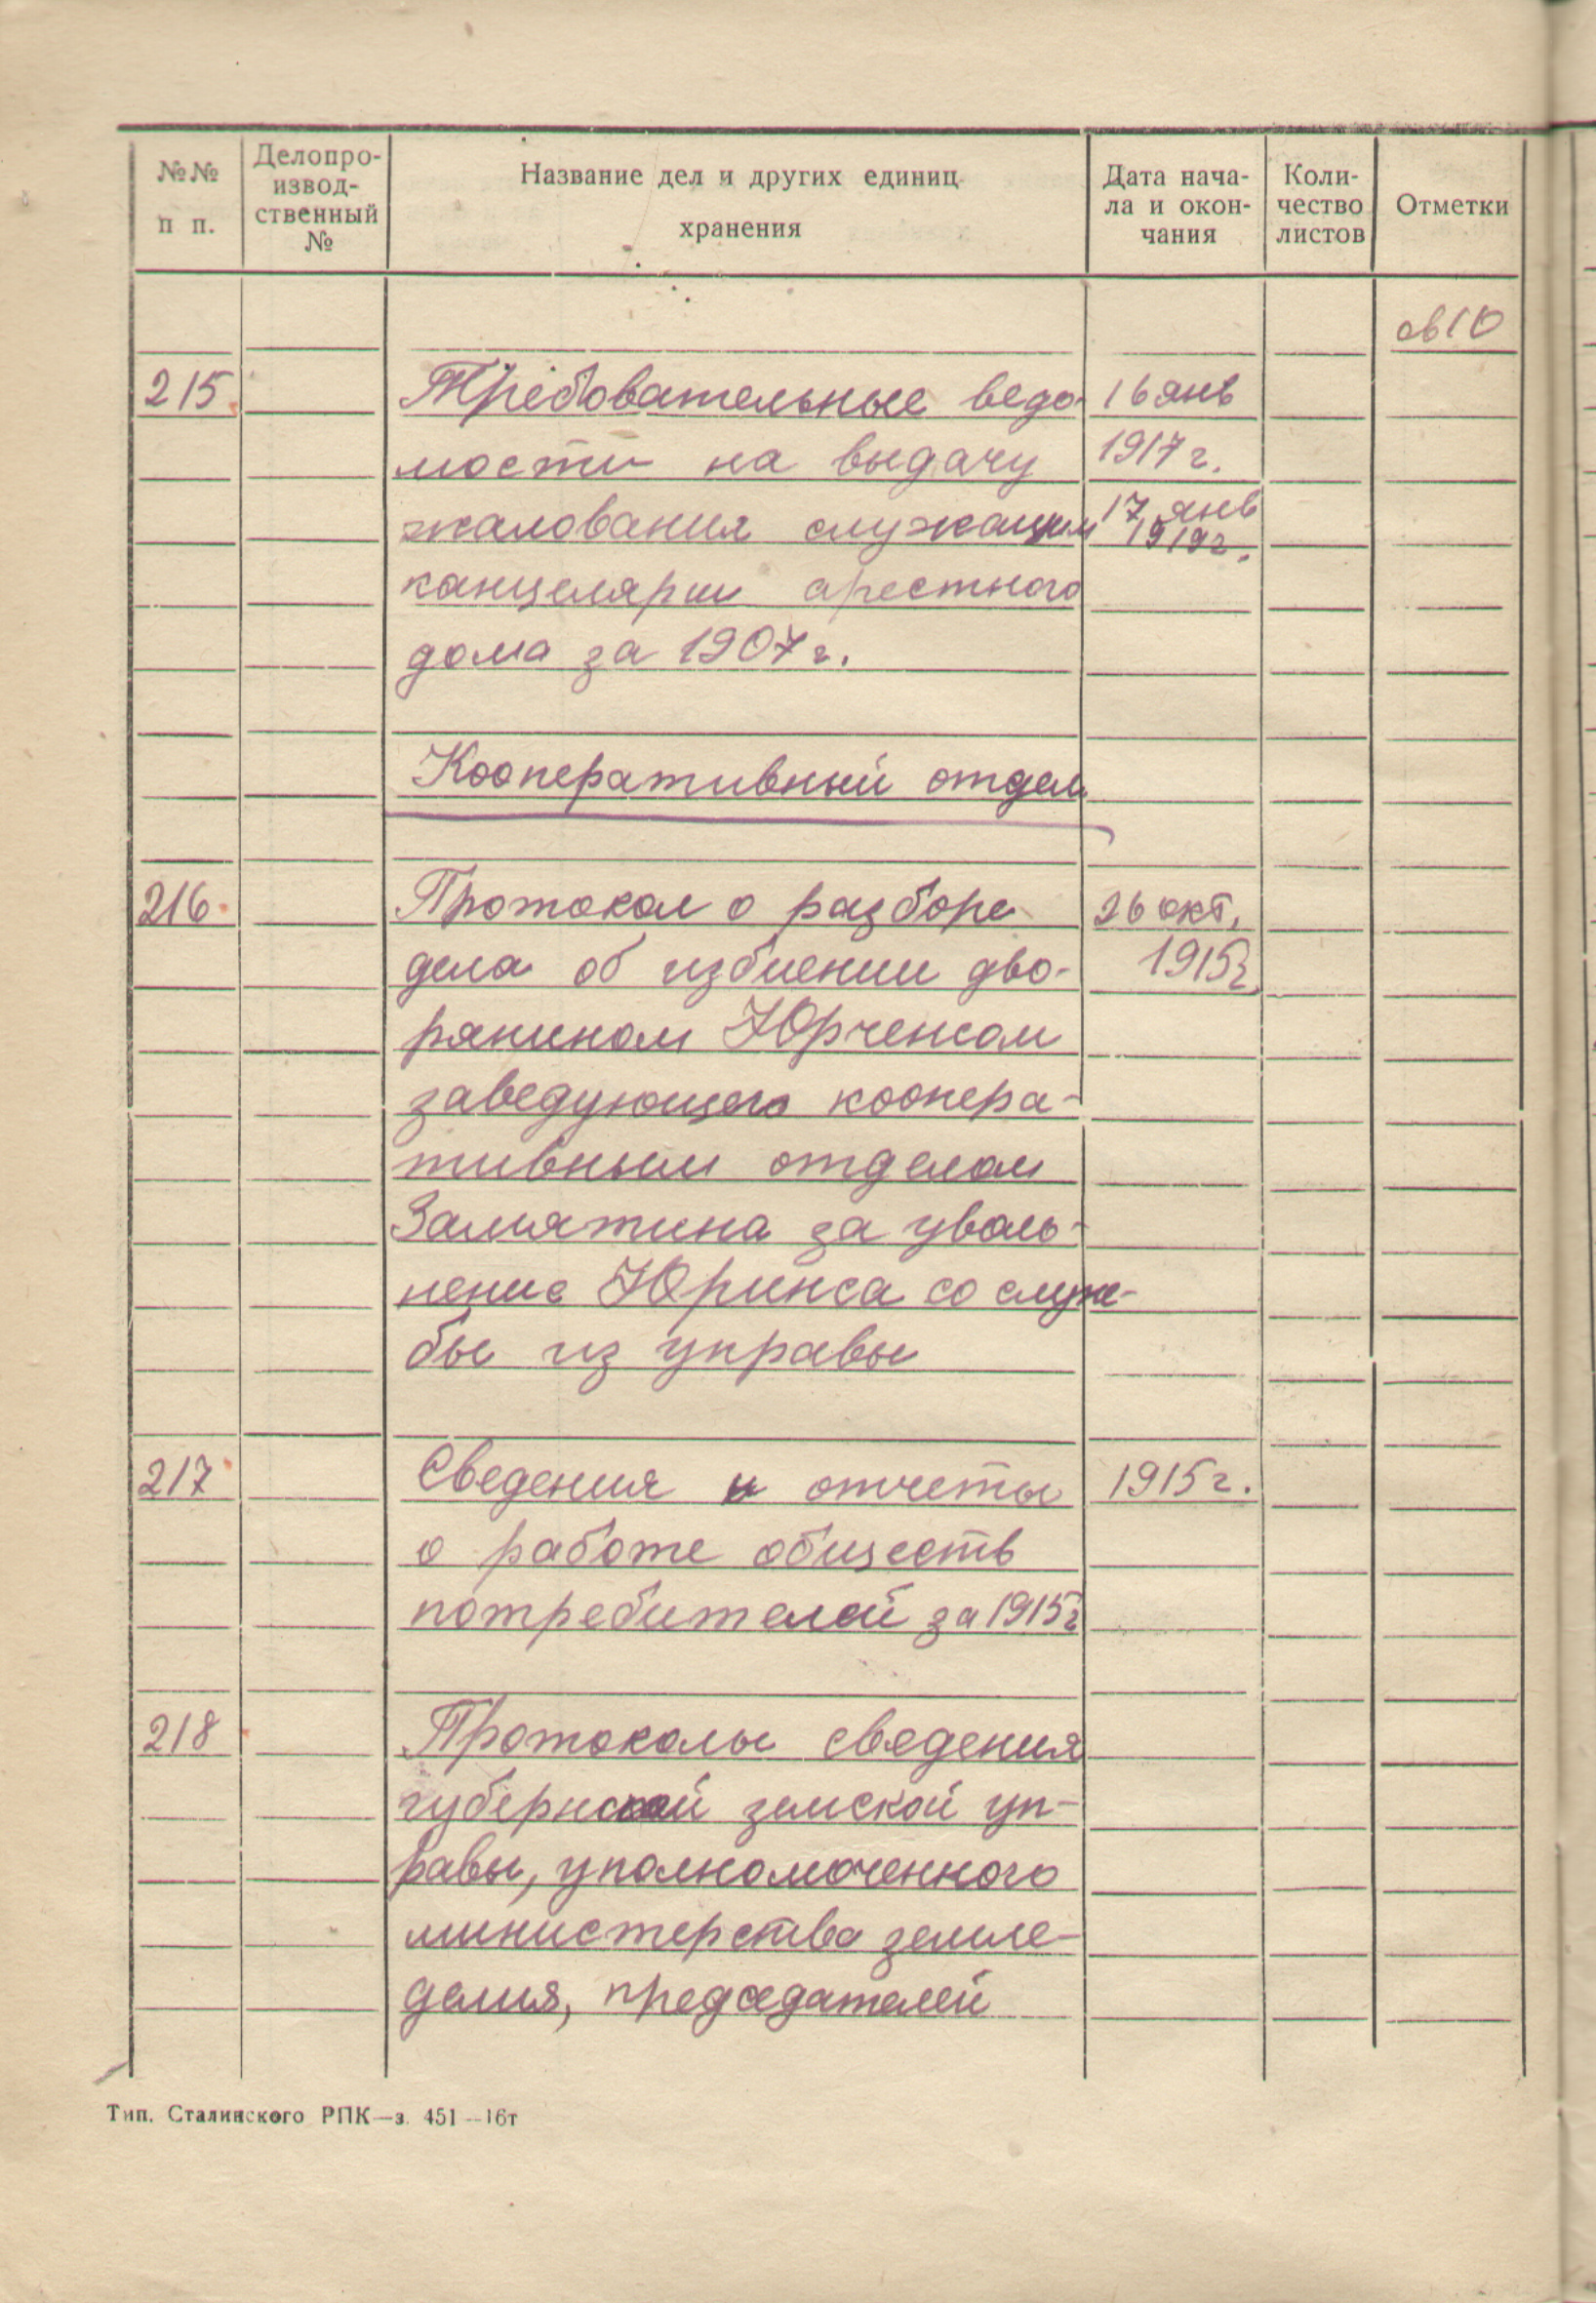 №№ п п.
Делопро-
извод-
ственный
№
Название дел и других единиц
хранения
Дата нача-
ла и окон-
чания
Коли-
чество
листов
Отметки
св 10
215. Требовательные ведо- 16 янв
мости на выдачу 1917 г.
жалования служащим 17 янв
1919г.
канцелярии арестного
дома за 1907 г.
Кооперативный отдел
216. Протокол о разборе 26 окт.
дела об избиении дво- 1915г
рянином Юрченсом
заведующего коопера-
тивным отделом
Замятина за уволь-
нение Юринса со служ-
бы из управы
217 Сведения и отчеты 1915 г.
о работе обществ
потребителей за 1915г
218 Протоколы сведения
губернской земской уп-
равы, уполномоченного
министерства земле-
делия, председателей
Тип. Сталинского РПК—з. 451—16т